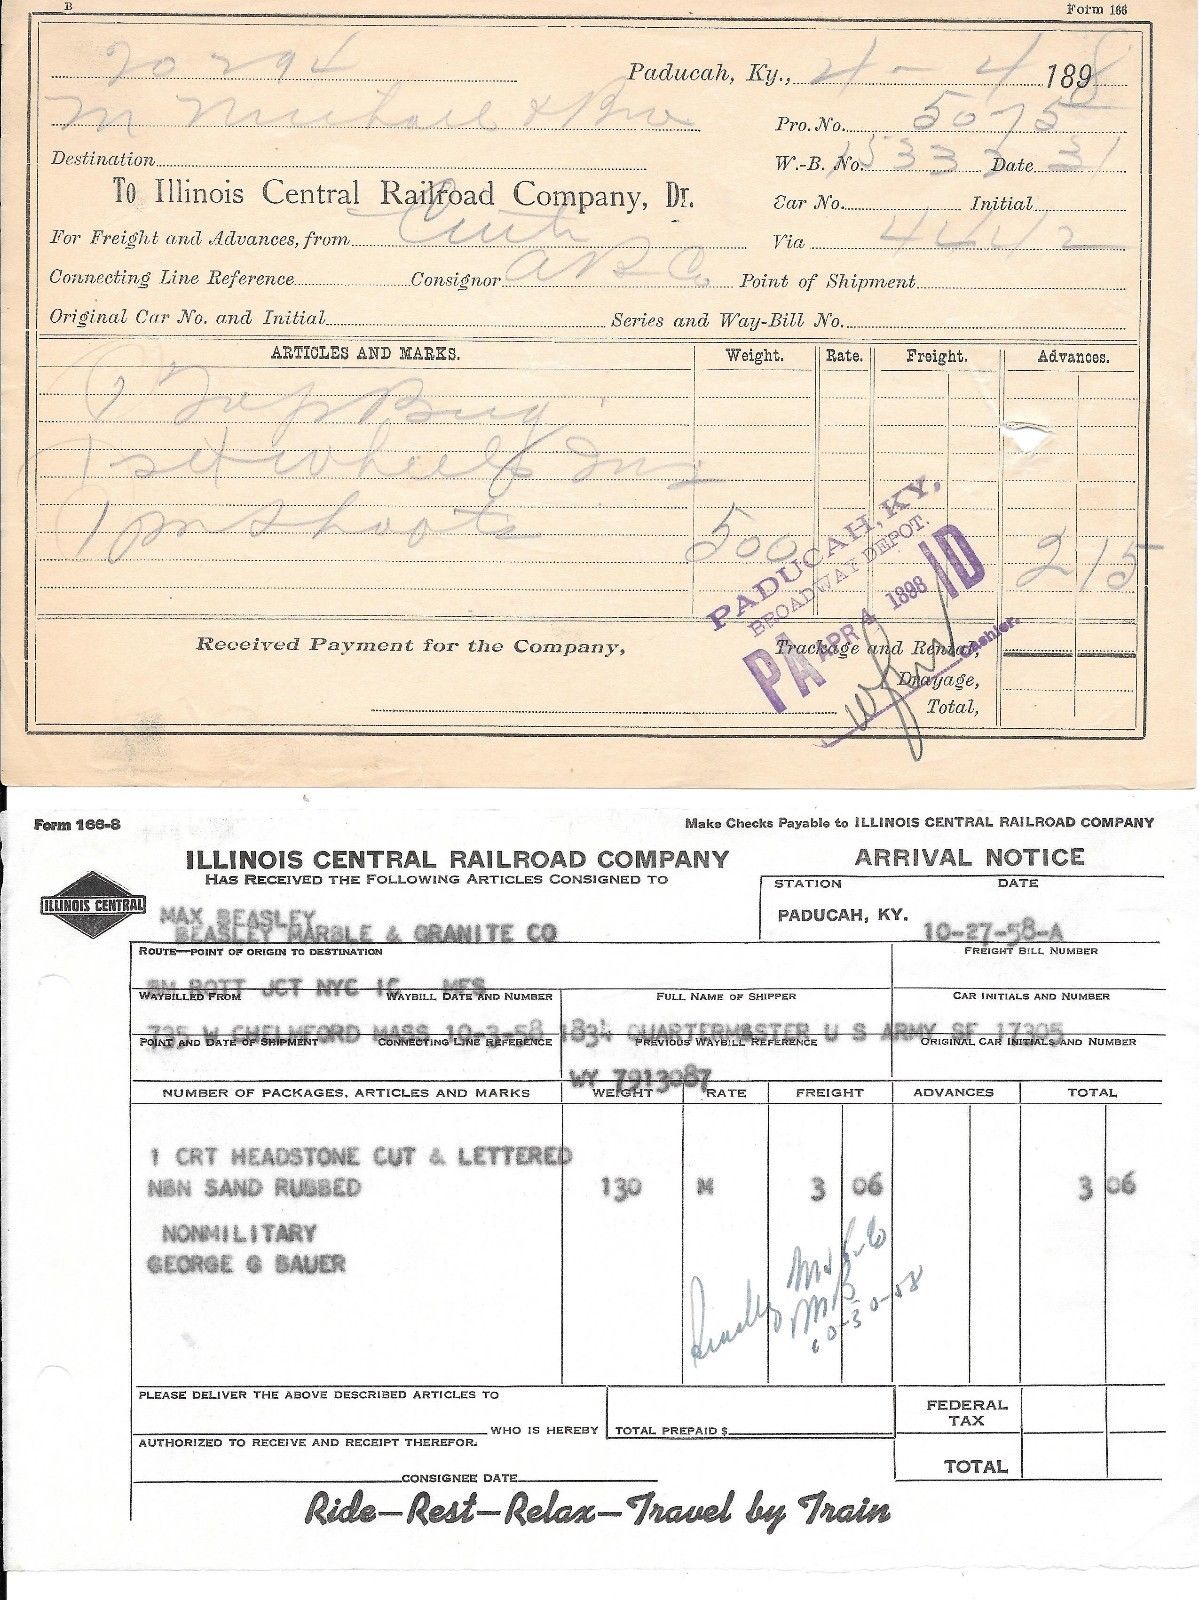 B Form 166
70294 Paducah, Ky., 4-4 1898
M Michael & Bro Pro. No. 5075
Destination W.-B. No. 15333 Date 31
To Illinois Central Railroad Company, Dr. Car No. Initial
For Freight and Advances, from Cinti Via 4442
Connecting Line Reference Consignor A B Co Point of Shipment
Original Car No. and Initial Series and Way-Bill No.
ARTICLES AND MARKS. Weight. Rate. Freight. Advances.
1 Top Bug
1 set wheels
1 Shafts 500 2 15
PADUCAH, KY.
BROADWAY DEPOT.
PAID
APR 4 1898
Cashier.
Received Payment for the Company, Trackage and Rental,
Drayage,
Total,
Form 166-8 Make Checks Payable to ILLINOIS CENTRAL RAILROAD COMPANY
ILLINOIS CENTRAL RAILROAD COMPANY ARRIVAL NOTICE
HAS RECEIVED THE FOLLOWING ARTICLES CONSIGNED TO STATION DATE
ILLINOIS CENTRAL
MAX BEASLEY PADUCAH, KY.
BEASLEY MARBLE & GRANITE CO 10-27-58-A
ROUTE—POINT OF ORIGIN TO DESTINATION FREIGHT BILL NUMBER
BM ROTT JCT NYC IC MFS
WAYBILLED FROM WAYBILL DATE AND NUMBER FULL NAME OF SHIPPER CAR INITIALS AND NUMBER
735 W CHELMFORD MASS 10-3-58 1834 QUARTERMASTER U S ARMY SF 17305
POINT AND DATE OF SHIPMENT CONNECTING LINE REFERENCE PREVIOUS WAYBILL REFERENCE ORIGINAL CAR INITIALS AND NUMBER
WY 7913087
NUMBER OF PACKAGES, ARTICLES AND MARKS WEIGHT RATE FREIGHT ADVANCES TOTAL
1 CRT HEADSTONE CUT & LETTERED
NBN SAND RUBBED 130 M 3 06 3 06
NONMILITARY
GEORGE G BAUER
Beasley M & G Co
MB
10-30-58
PLEASE DELIVER THE ABOVE DESCRIBED ARTICLES TO FEDERAL TAX
WHO IS HEREBY TOTAL PREPAID $
AUTHORIZED TO RECEIVE AND RECEIPT THEREFOR. TOTAL
CONSIGNEE DATE
Ride—Rest—Relax—Travel by Train